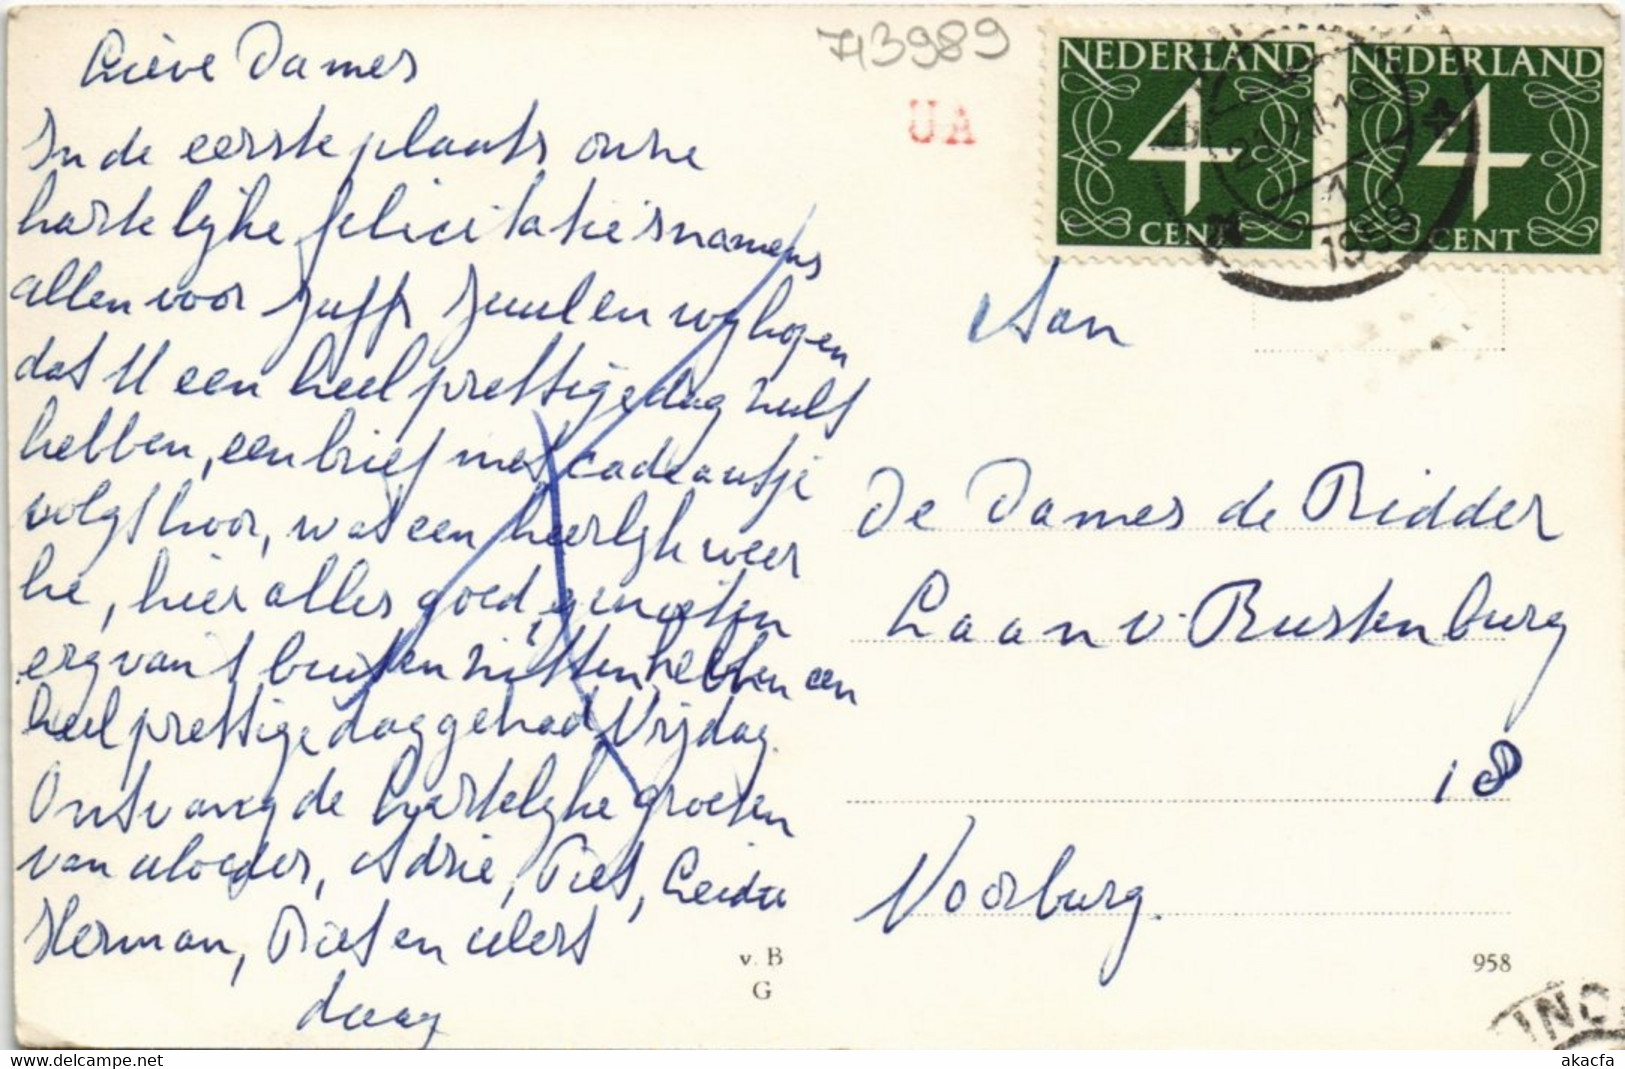 Lieve Dames
In de eerste plaats onze
hartelijke felicitatie's namens
allen voor Juffr Juul en wij hopen
dat U een heel prettige dag zult
hebben, een brief met cadeautje
volgt hoor, wat een heerlijk weer
hé, hier alles goed, genieten
erg van 't buiten zitten, hebben een
heel prettige dag gehad Vrijdag.
Ontvang de hartelijke groeten
van Moeder, Adrie, Piet,
Herman, Riet en
daag
743989
UA
NEDERLAND
4
CENT
NEDERLAND
4
CENT
1958
Aan
De Dames de Ridder
Laan v. Rustenburg
18
Voorburg.
v. B
G
958
akacfa
akacfa.com